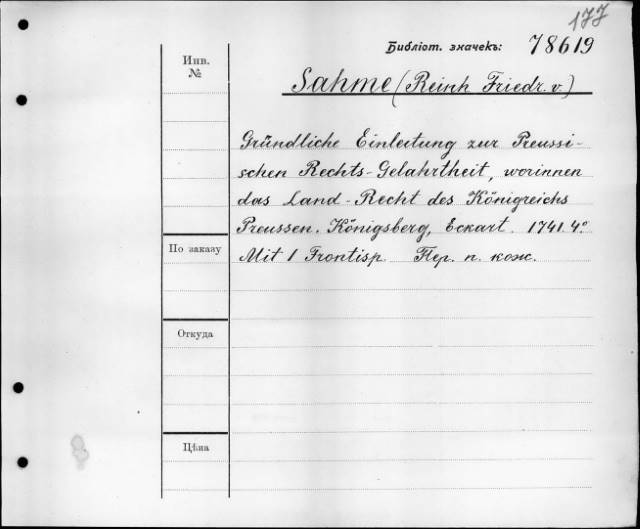 177
Библіот. значекъ: 78619
Инв. №
Sahme (Reinh Friedr. v.)
Gründliche Einleitung zur Preussi-
schen Rechts-Gelahrtheit, worinnen
das Land-Recht des Königreichs
Preussen. Königsberg, Eckart. 1741. 4º
По заказу
Mit 1 Frontisp. Пер. п. кож.
Откуда
Цѣна